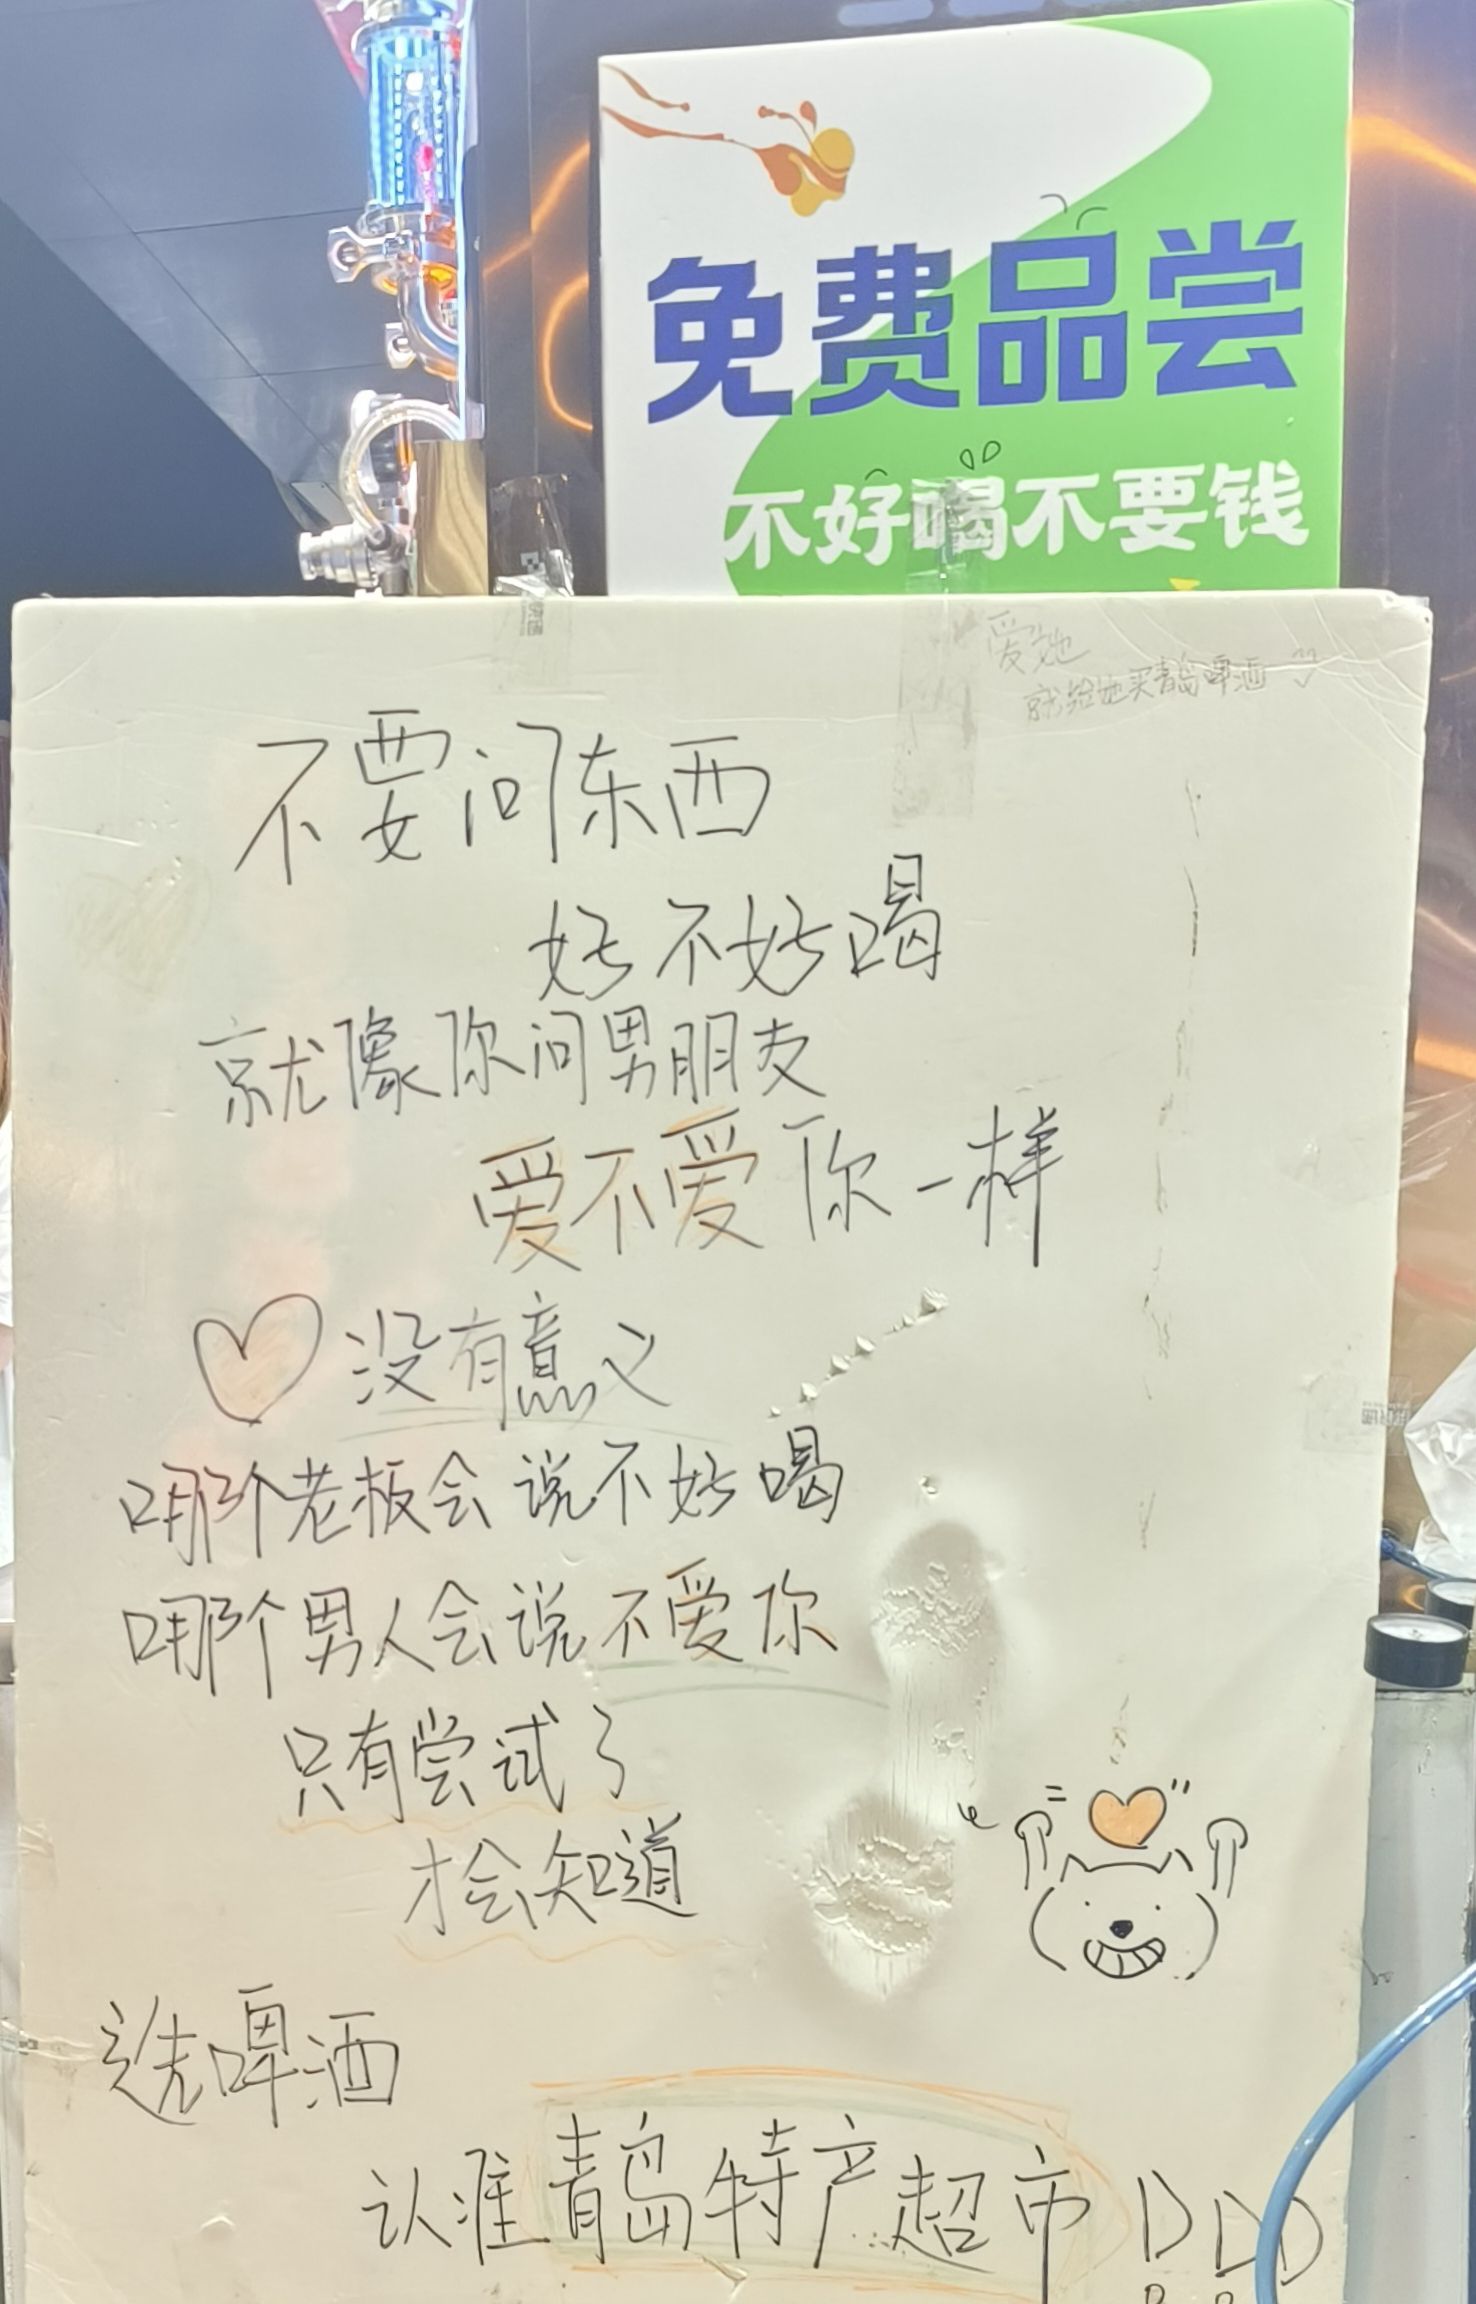 免费品尝
不好喝不要钱
爱她
就给她买青岛啤酒
不要问东西
好不好喝
就像你问男朋友
爱不爱你一样
没有意义
哪个老板会说不好喝
哪个男人会说不爱你
只有尝试了
才会知道
选啤酒
认准青岛特产超市